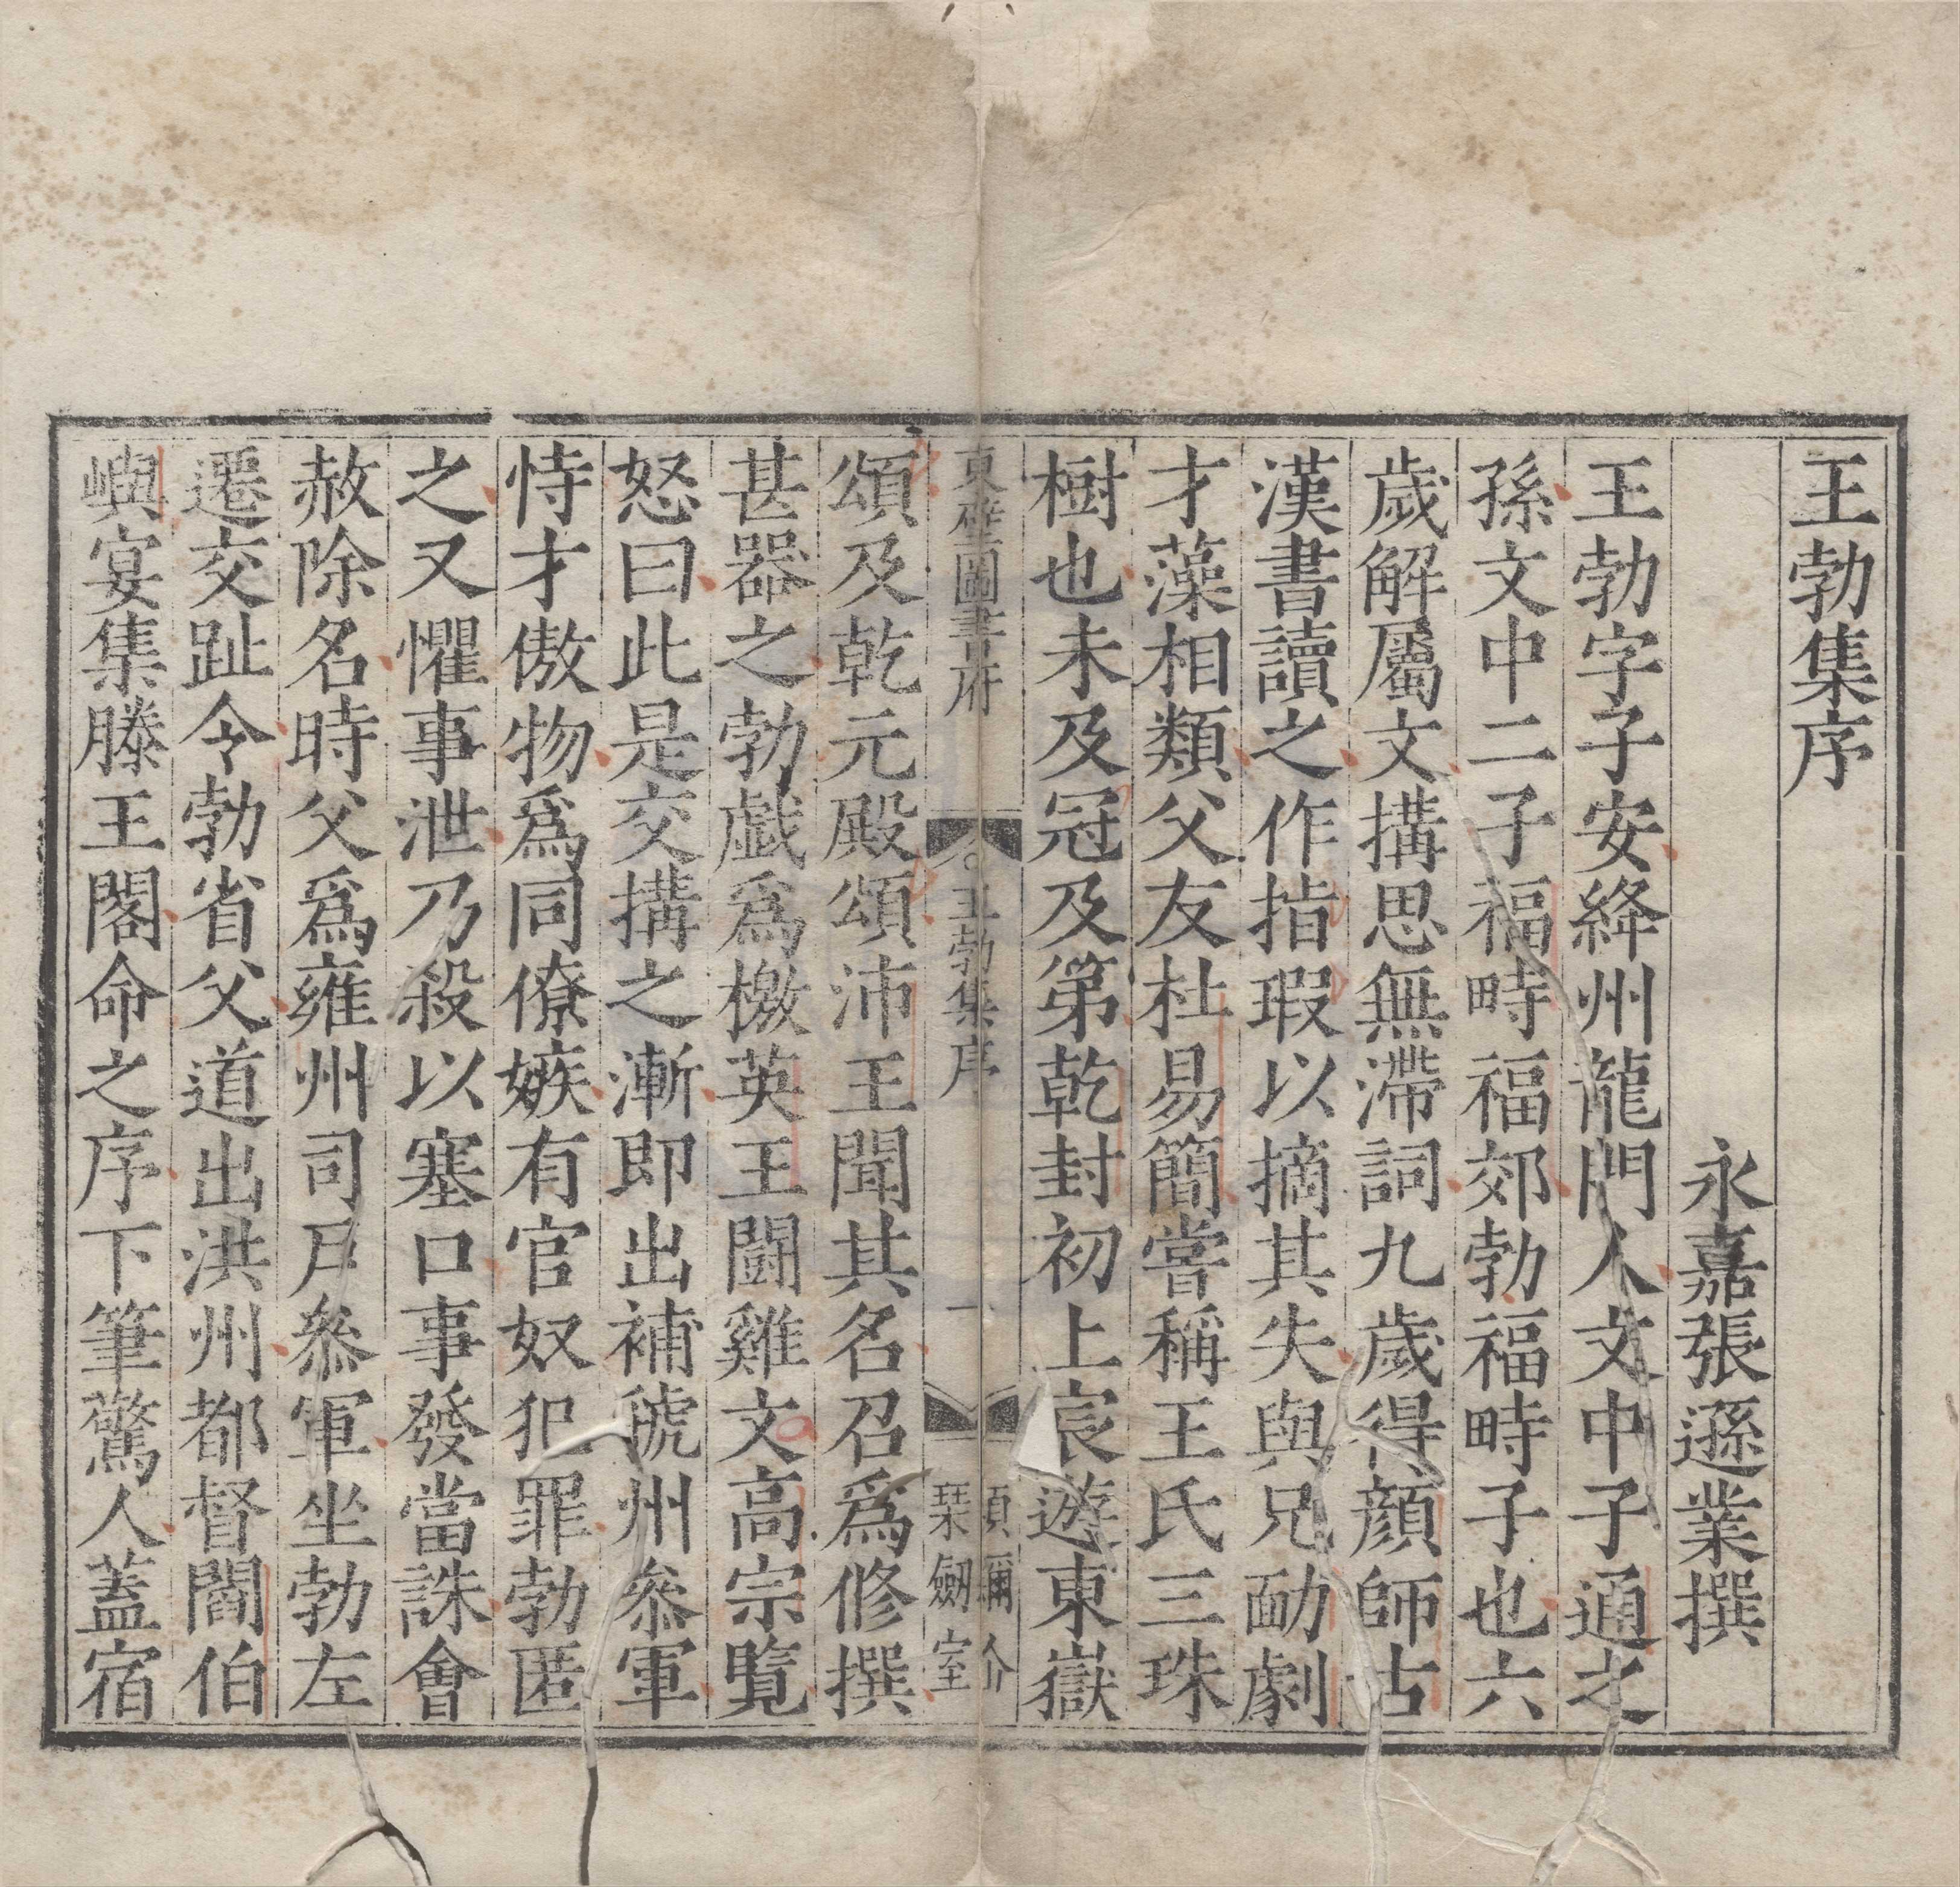 王勃集序
永嘉張遜業撰
王勃字子安絳州龍門人文中子通之
孫文中二子福畤福郊勃福畤子也六
歲解屬文搆思無滯詞九歲得顏師古
漢書讀之作指瑕以摘其失與兄勔劇
才藻相類父友杜易簡嘗稱王氏三珠
樹也未及冠及第乾封初上宸遊東嶽
東壁圖書府
王勃集序
一
項禰介
琹劒室
頌及乾元殿頌沛王聞其名召爲修撰
甚器之勃戯爲檄英王鬭雞文高宗覽
怒曰此是交搆之漸即出補虢州叅軍
恃才傲物爲同僚嫉有官奴犯罪勃匿
之又懼事泄乃殺以塞口事發當誅會
赦除名時父爲雍州司戶叅軍坐勃左
遷交趾令勃省父道出洪州都督閻伯
嶼宴集滕王閣命之序下筆驚人蓋宿